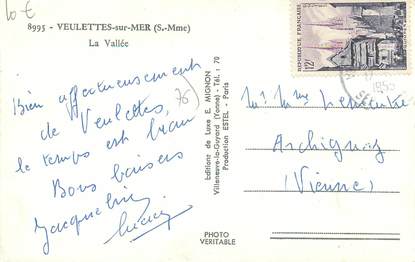 10 €
8995 - VEULETTES-sur-MER (S.-Mme)
La Vallée
76)
Bien affectueusement
de Veulettes,
le temps est beau
Bons baisers
Jacqueline
Editions de Luxe E. MIGNON
Villeneuve-la-Guyard (Yonne) - Tél. 70
Production ESTEL - Paris
PHOTO
VERITABLE
REPUBLIQUE FRANÇAISE
12F
Mr Mme
Archignat
(Vienne)